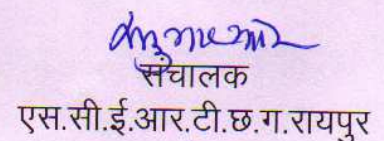 संचालक
एस.सी.ई.आर.टी.छ.ग.रायपुर